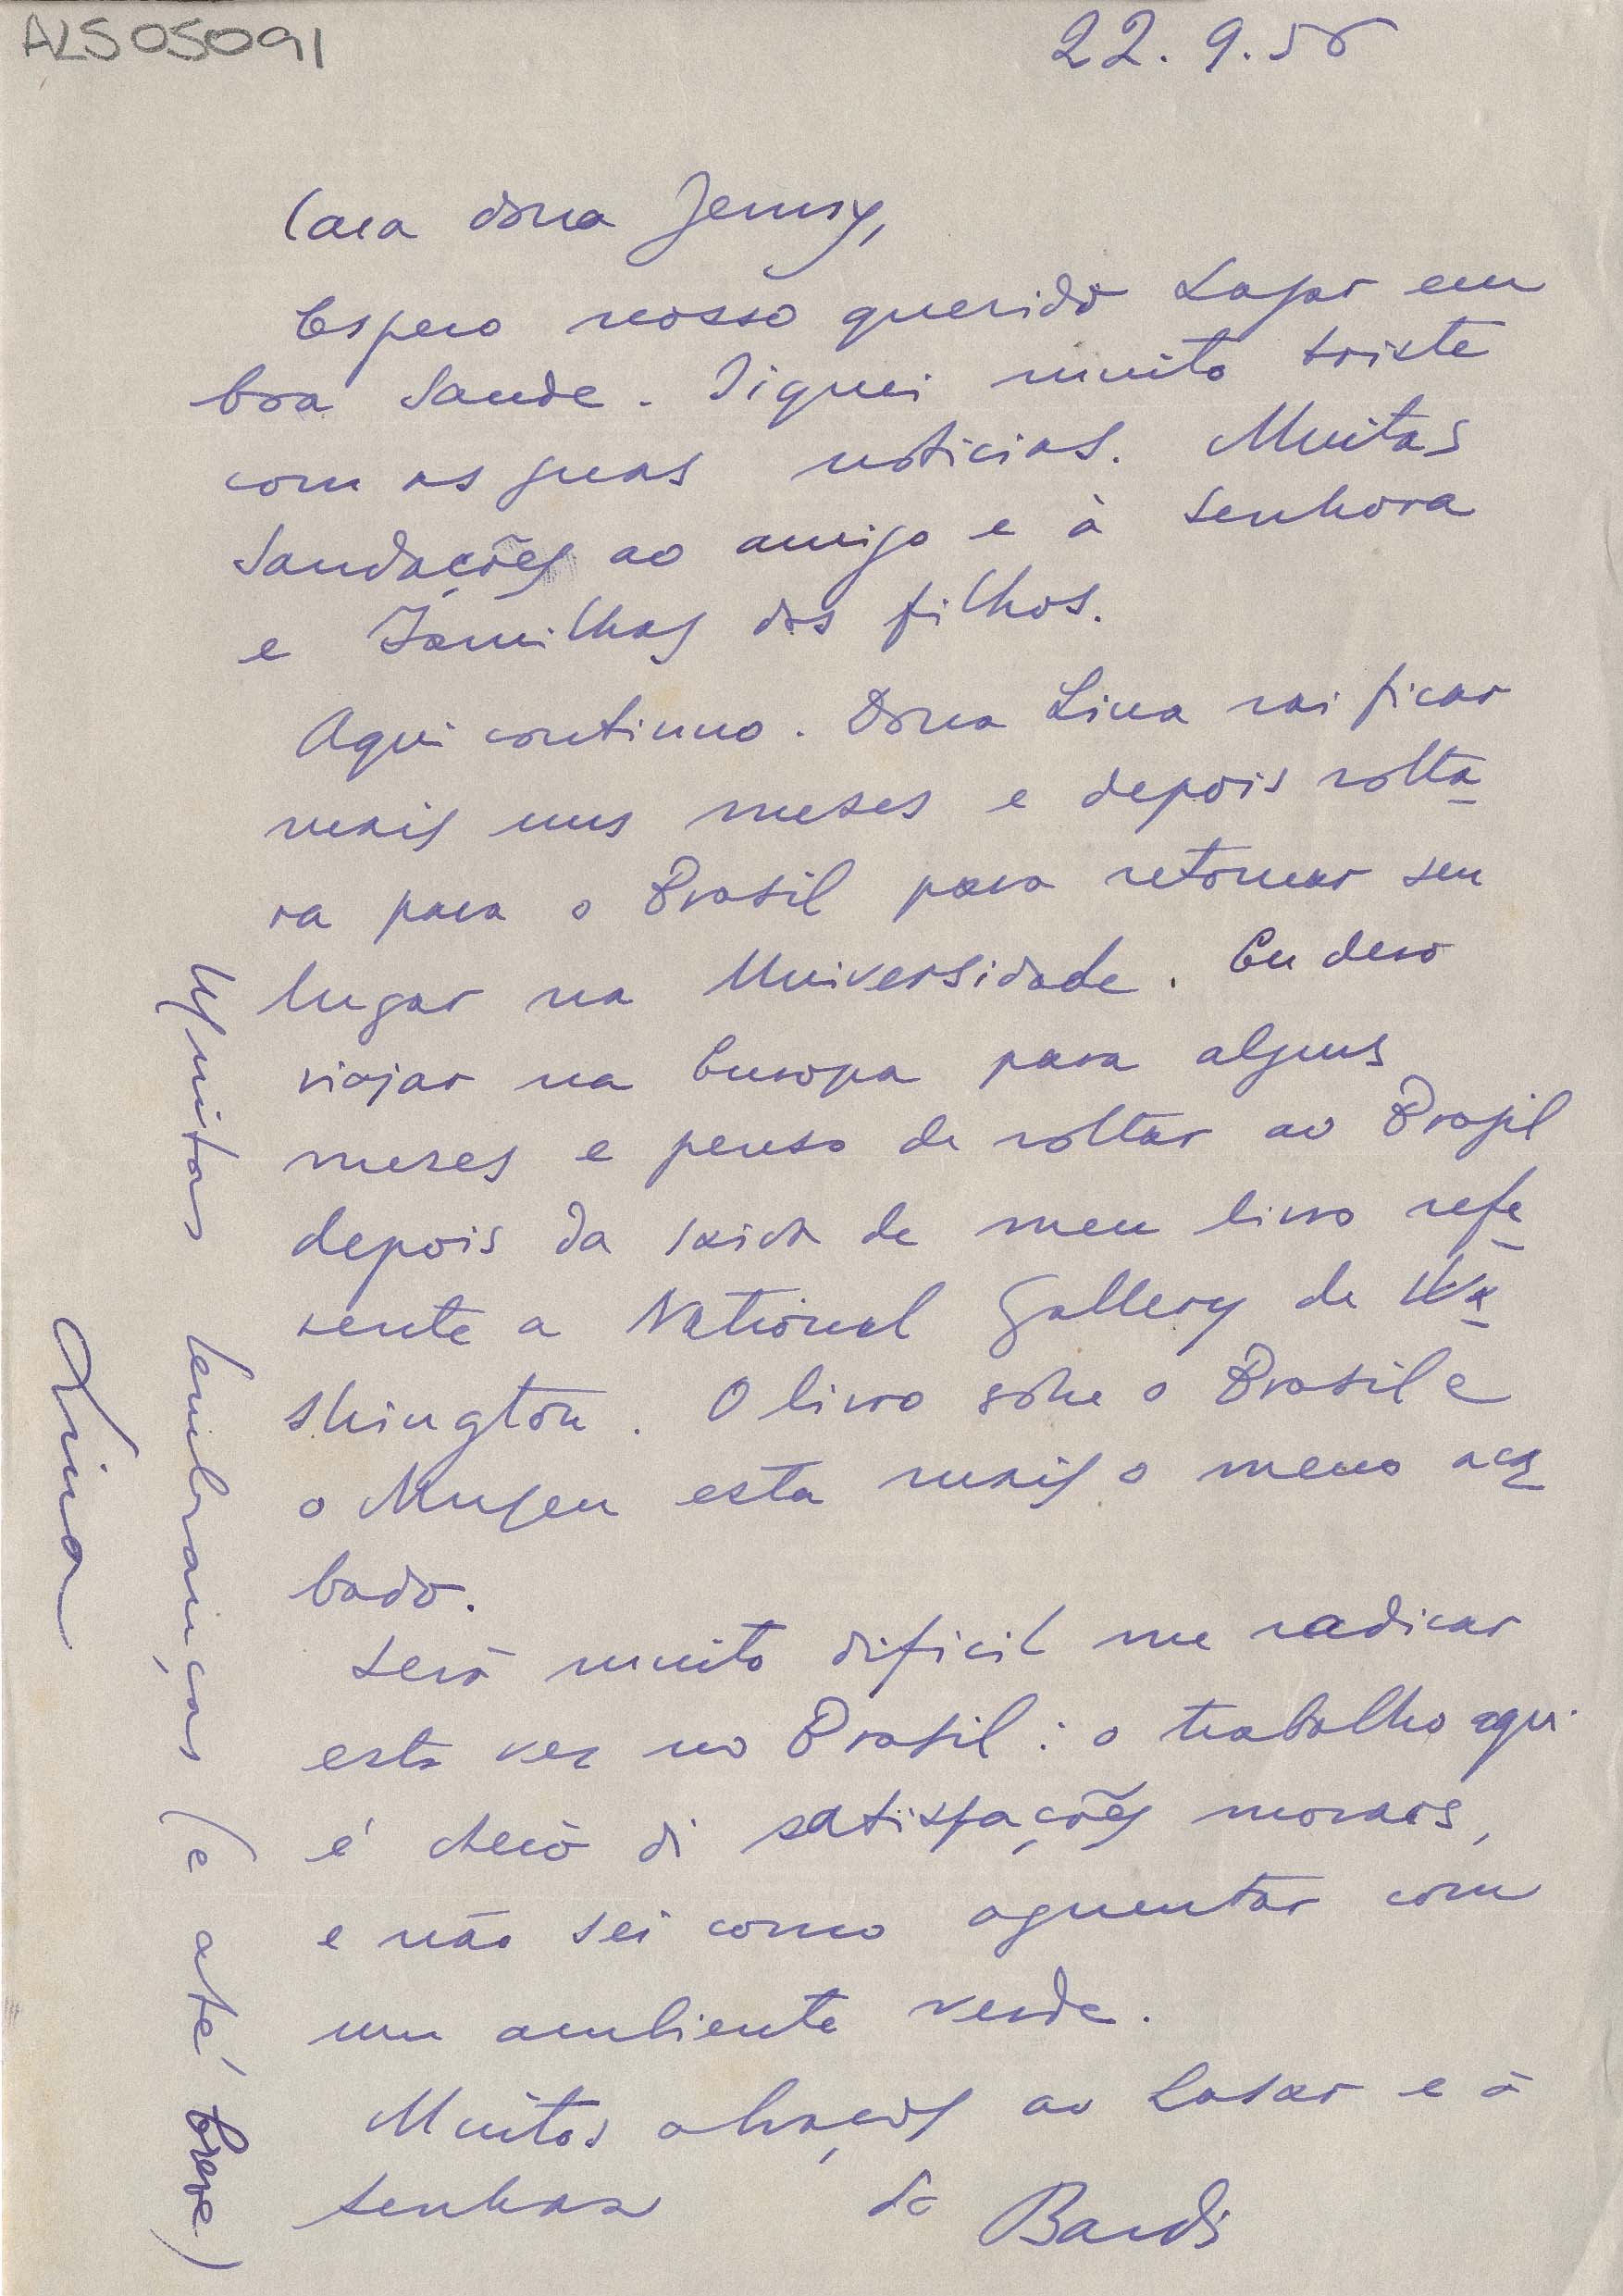 ALS05091
22.9.56
Cara dona Jenny,
Espero nosso querido Lasar em
boa saude. Fiquei muito triste
com as suas noticias. Muitas
saudações ao amigo e à senhora
e familhas dos filhos.
Aqui continuo. Dona Lina vai ficar
mais uns meses e depois volta
ra para o Brasil para retomar seu
lugar na Universidade. Eu devo
viajar na Europa para alguns
meses e penso de voltar ao Brasil
depois da saida de meu livro refe
rente a National Gallery de Wa
shington. O livro sobre o Brasil e
o Museu esta mais o meno aca
bado.
Será muito dificil me radicar
esta vez no Brasil: o trabalho aqui
é cheio di satisfações moraes,
e não sei como aguentar com
um ambiente verde.
Muitos abraços ao Lasar e à
senhora do Bardi
Muitas lembranças (e até breve)
Lina